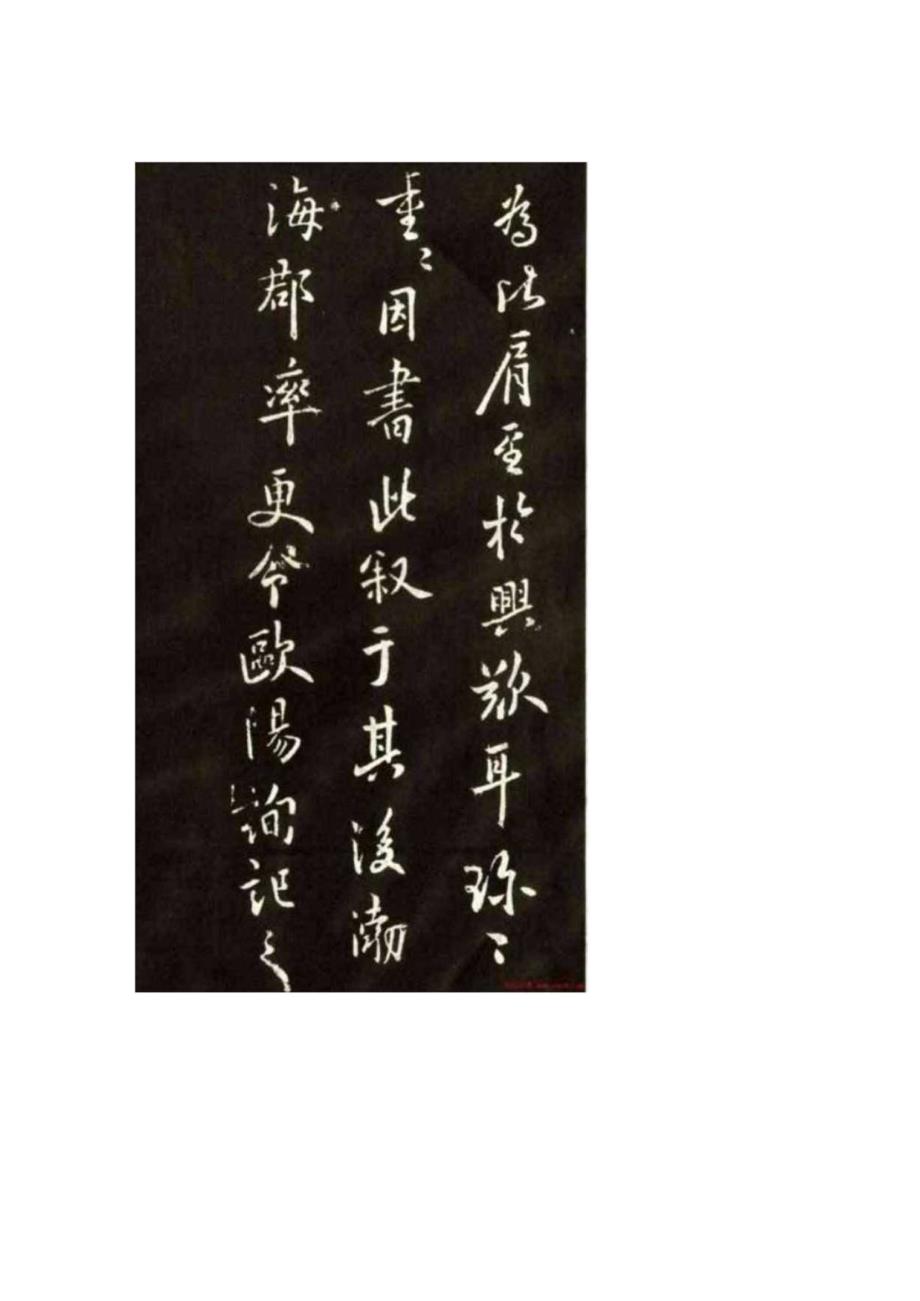 為此肩至於興歎耳珎〻
重〻因書此叙于其後渤
海郡率更令歐陽詢記之